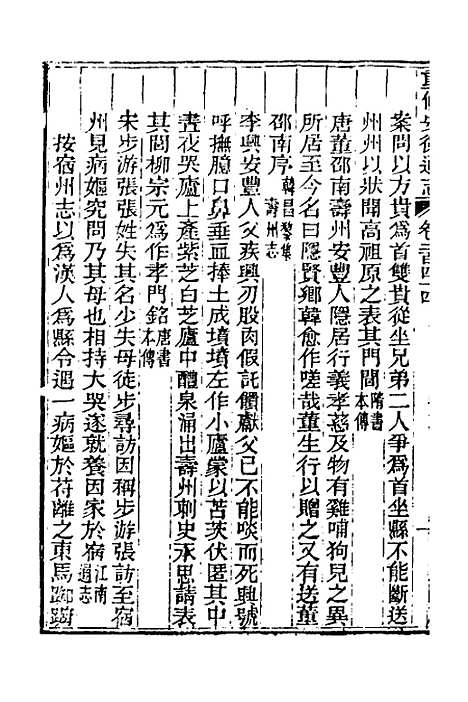 重修安徽通志 卷二百四十四
案問以方貴爲首雙貴從坐兄弟二人爭爲首坐縣不能斷送
州州以狀聞高祖原之表其門閭隋書本傳
唐董邵南壽州安豐人隱居行義孝慈及物有雞哺狗兒之異
所居至今名曰隱賢鄉韓愈作嗟哉董生行以贈之又有送董
邵南序韓昌黎集壽州志
李興安豐人父疾興刃股肉假託饋獻父已不能啖而死興號
呼撫臆口鼻垂血捧土成墳墳左作小廬蒙以苫茨伏匿其中
晝夜哭廬上產紫芝白芝廬中醴泉涌出壽州刺史承思請表
其閭柳宗元爲作孝門銘唐書本傳
宋步游張張姓失其名少失母徒步尋訪因稱步游張訪至宿
州見病嫗究問乃其母也相持大哭遂就養因家於宿江南通志
按宿州志以爲漢人爲縣令遇一病嫗於苻離之東馬踟躕